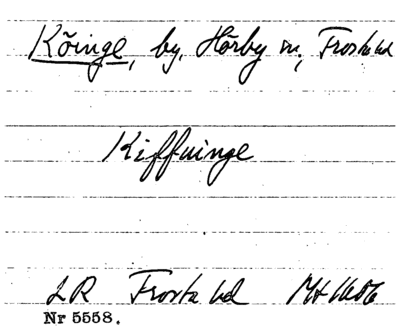 Köinge, by, Hörby sn, Frosta hd
Kiffuinge
LR Frosta hd Mt 1606
Nr 5558.